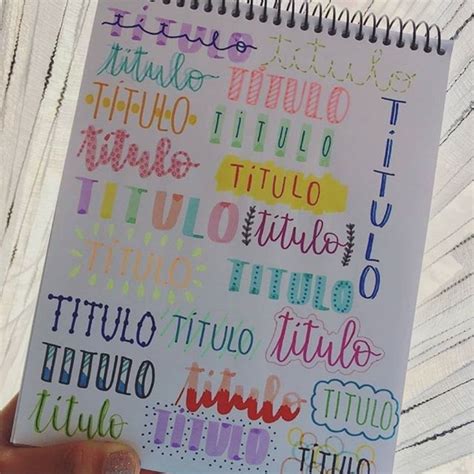 TÍTULO
título
título
título
TÍTULO
TÍTULO
TÍTULO
TÍTULO
título
TÍTULO
TÍTULO
título
título
TÍTULO
TITULO
TÍTULO
título
TITULO
título
TÍTULO
título
TÍTULO
TÍTULO